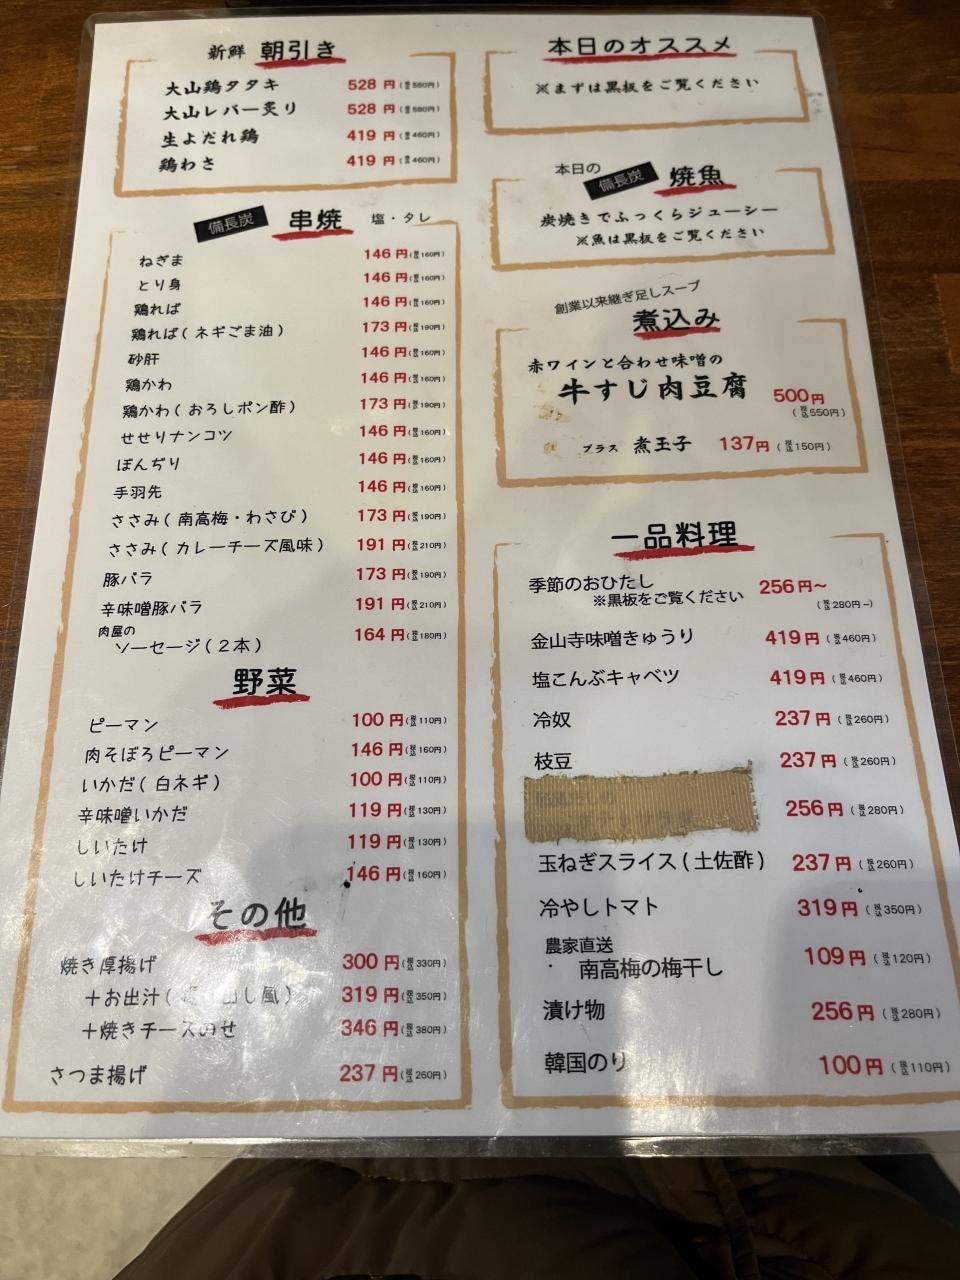 新鮮 朝引き
大山鶏タタキ 528円(税込580円)
大山レバー炙り 528円(税込580円)
生よだれ鶏 419円(税込460円)
鶏わさ 419円(税込460円)
備長炭 串焼 塩・タレ
ねぎま 146円(税込160円)
とり身 146円(税込160円)
鶏れば 146円(税込160円)
鶏れば(ネギごま油) 173円(税込190円)
砂肝 146円(税込160円)
鶏かわ 146円(税込160円)
鶏かわ(おろしポン酢) 173円(税込190円)
せせりナンコツ 146円(税込160円)
ぼんぢり 146円(税込160円)
手羽先 146円(税込160円)
ささみ(南高梅・わさび) 173円(税込190円)
ささみ(カレーチーズ風味) 191円(税込210円)
豚バラ 173円(税込190円)
辛味噌豚バラ 191円(税込210円)
肉屋の
ソーセージ(2本) 164円(税込180円)
野菜
ピーマン 100円(税込110円)
肉そぼろピーマン 146円(税込160円)
いかだ(白ネギ) 100円(税込110円)
辛味噌いかだ 119円(税込130円)
しいたけ 119円(税込130円)
しいたけチーズ 146円(税込160円)
その他
焼き厚揚げ 300円(税込330円)
+お出汁( 出し風) 319円(税込350円)
+焼きチーズのせ 346円(税込380円)
さつま揚げ 237円(税込260円)
本日のオススメ
※まずは黒板をご覧ください
本日の
備長炭 焼魚
炭焼きでふっくらジューシー
※魚は黒板をご覧ください
創業以来継ぎ足しスープ
煮込み
赤ワインと合わせ味噌の
牛すじ肉豆腐 500円
(税込550円)
プラス 煮玉子 137円(税込150円)
一品料理
季節のおひたし 256円~
※黒板をご覧ください (税込280円~)
金山寺味噌きゅうり 419円(税込460円)
塩こんぶキャベツ 419円(税込460円)
冷奴 237円(税込260円)
枝豆 237円(税込260円)
256円(税込280円)
玉ねぎスライス(土佐酢) 237円(税込260円)
冷やしトマト 319円(税込350円)
農家直送
南高梅の梅干し 109円(税込120円)
漬け物 256円(税込280円)
韓国のり 100円(税込110円)